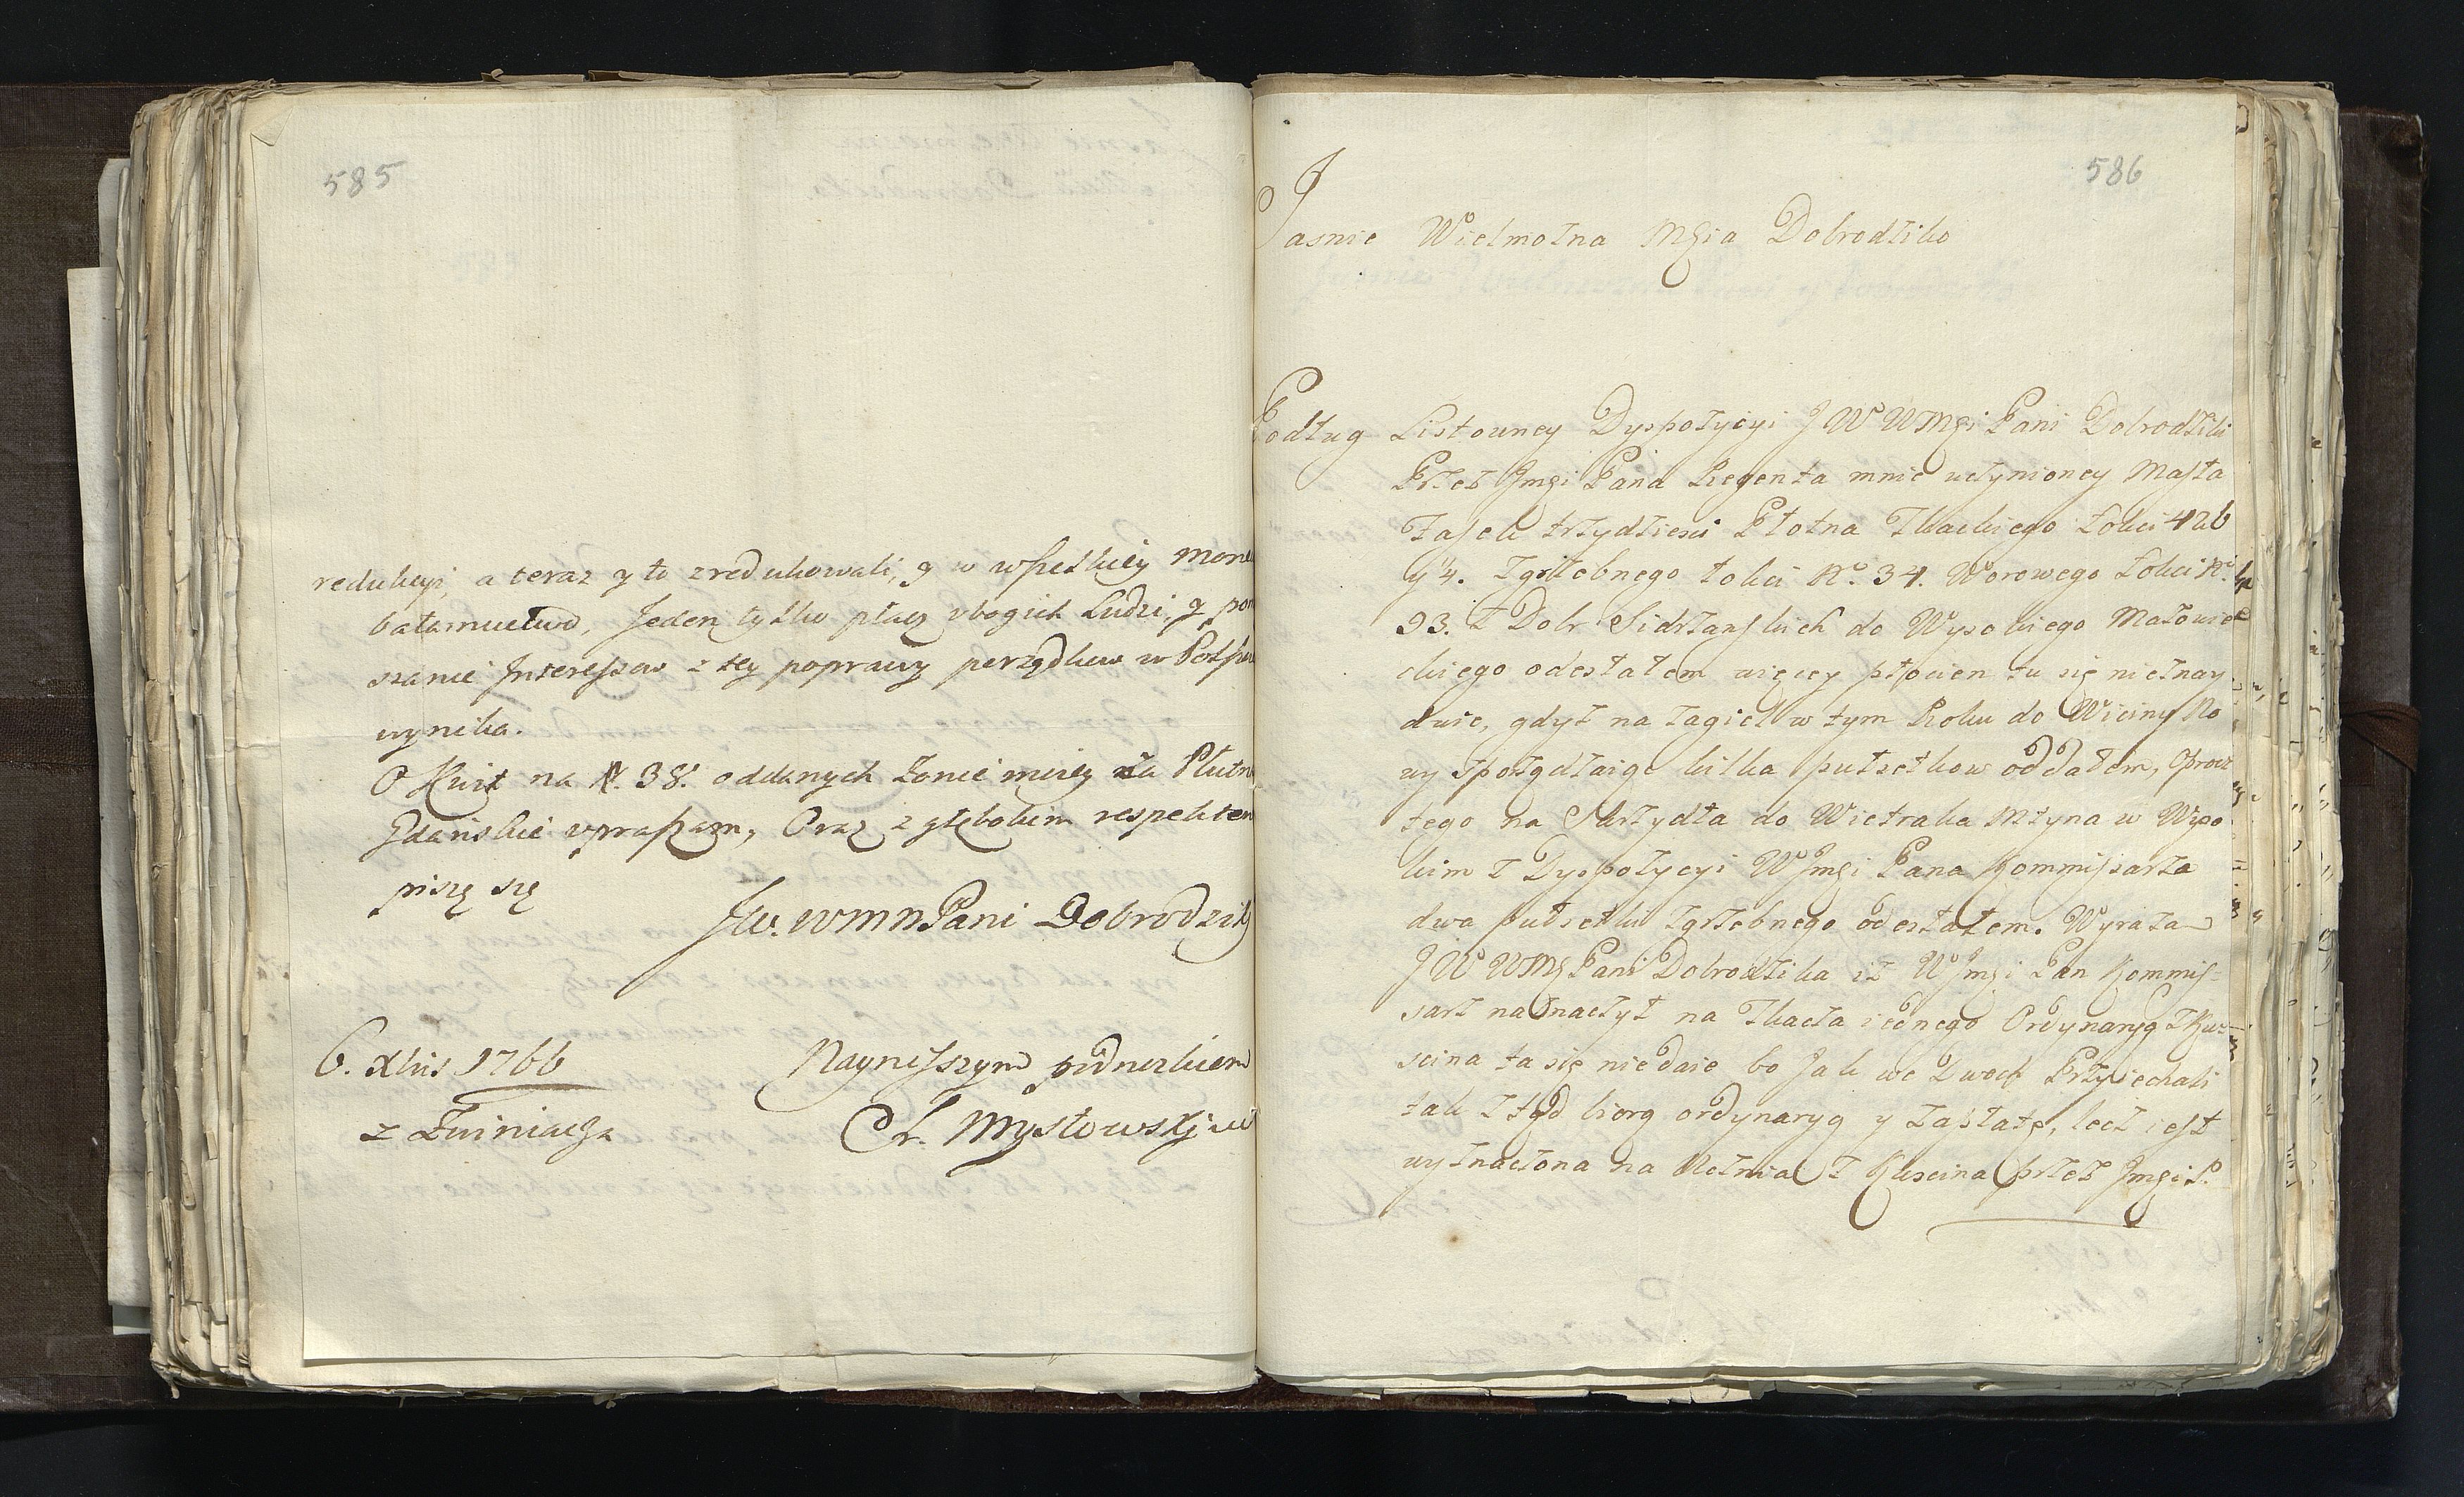 585
redukcyi, a teraz y to zredukowali, y w wszelkiey mone
bałamuctwo, Jeden tylko płacz vbogich Ludzi, y pom
szanie Interessow z tey poprawy porządkow w Polszcz
wynika.
O Kwit na N. 38. oddanych Łonieimierz za Płutn
Gdańskie vpraszam, Oraz z głębokim respektem
piszę się
JW. WMM Pani Dobrodzik
6. Xbris 1766
Nayniższym podnozkiem
z
Ch. Mysłowskj
586
Jasnie Wielmożna Mgia Dobrodziko
Podług Listowney Dyspozycyi JWWMgi Pani Dobrodziki
Przez Jmgi Pana Regenta mnie uczynioney Maszta
Trzydziesci Płotna Tkackiego Łokci 426
y 4. Zgrzebnego łokci No. 34. Worowego Łokci No.
93. z Dobr Sidrzanskich do Wysokiego Mazowie
ckiego odesłałem więcey płocien tu się nieznay
duie, gdyż na żagiel w tym Roku do Wiciny No
wy sporządzaiąc kilka pułsetkow oddałem, oprocz
tego na Skrzydła do Wiatraka Młyna w Wyso
kim z Dyspozycyi WJmgi Pana Kommissarza
dwa pułsetki zgrzebnego odesłałem. Wyraża
JWWMg Pani Dobrodzika iż WJmgi Pan Kommis=
sarz naznaczył na Tkacza iednego Ordynaryą z Ku=
scina ta się niedaie bo Jak we Dwoch Przyiechali
tak ztąd biorą ordynaryą y zapłatę, lecz iest
wyznaczona na Ucznia z Kuscina przez Jmgi P.